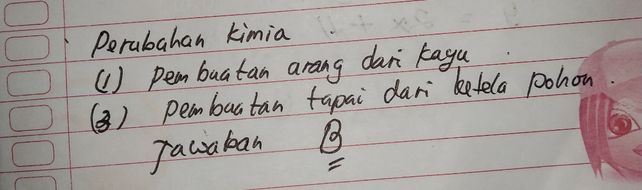 Perubahan kimia
(1) Pembuatan arang dari kayu.
(3) Pembuatan tapai dari ketela pohon.
Jawaban B